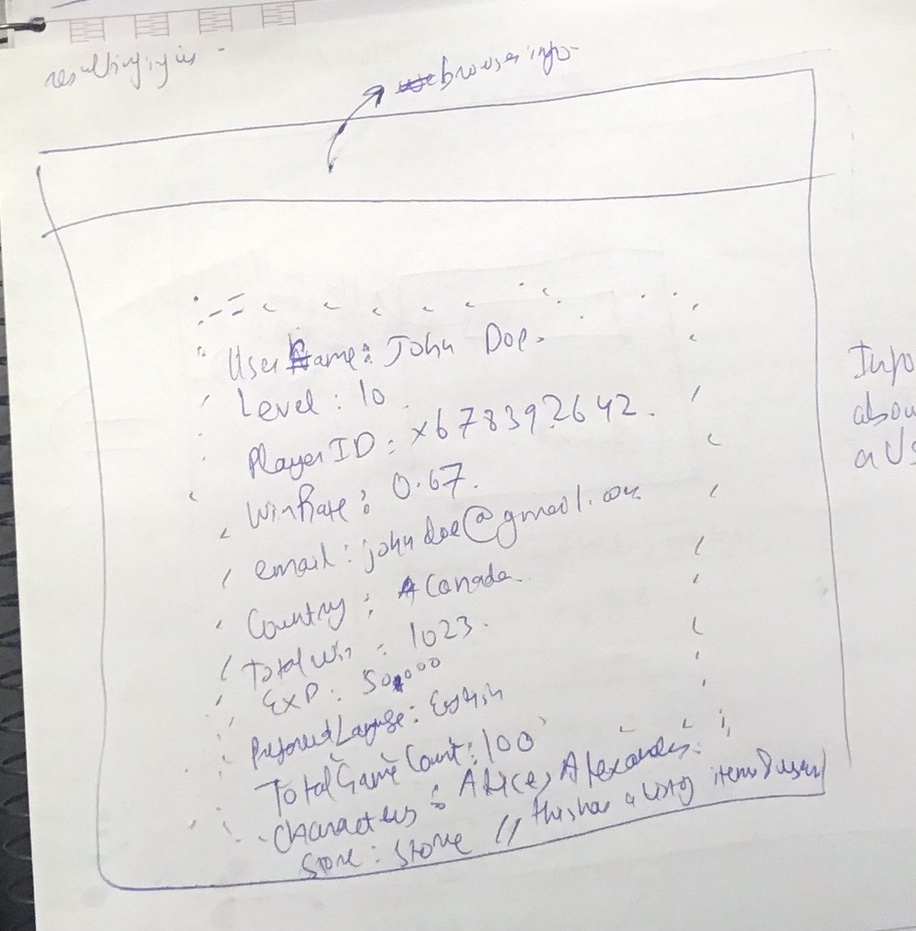 resulting is
browser info
User Name: John Doe.
Level: 10
Player ID: x678392642.
WinRate: 0.67.
email: johndoe@gmail.com
Country: Canada.
Total Win: 1023.
EXP: 50,000
Preferred Language: English
Total Game Count: 100
Characters: Alice, Alexander.
Store: Store // this has a list items user
Info
abou
a Us